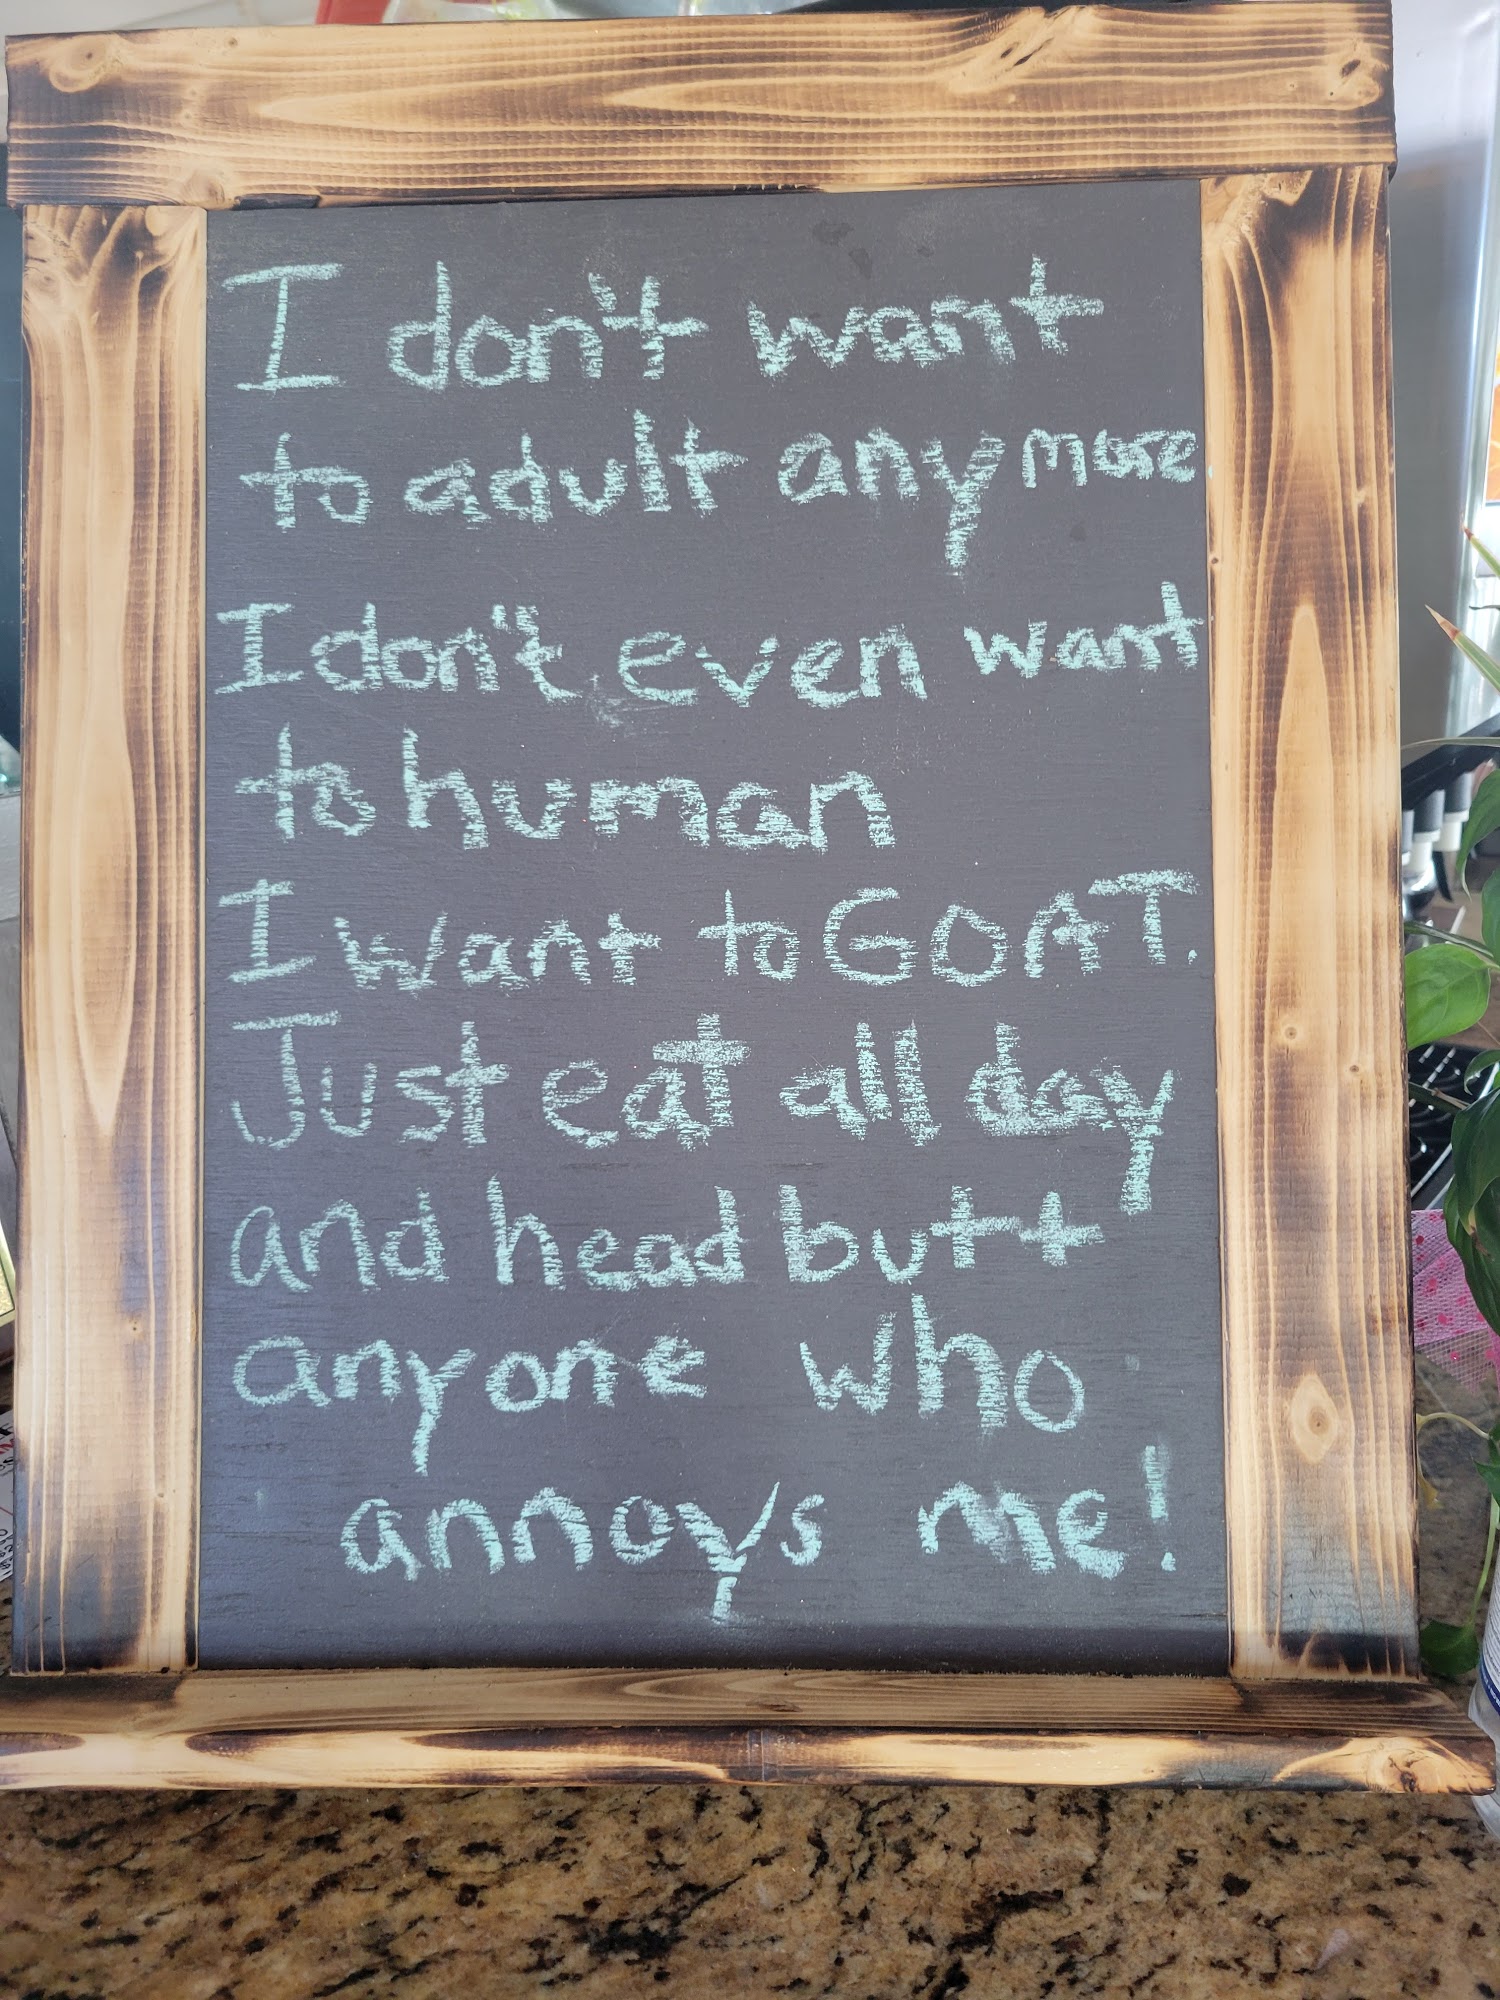 I don't want
to adult anymore
I don't even want
to human
I want to GOAT.
Just eat all day
and head butt
anyone who
annoys me!